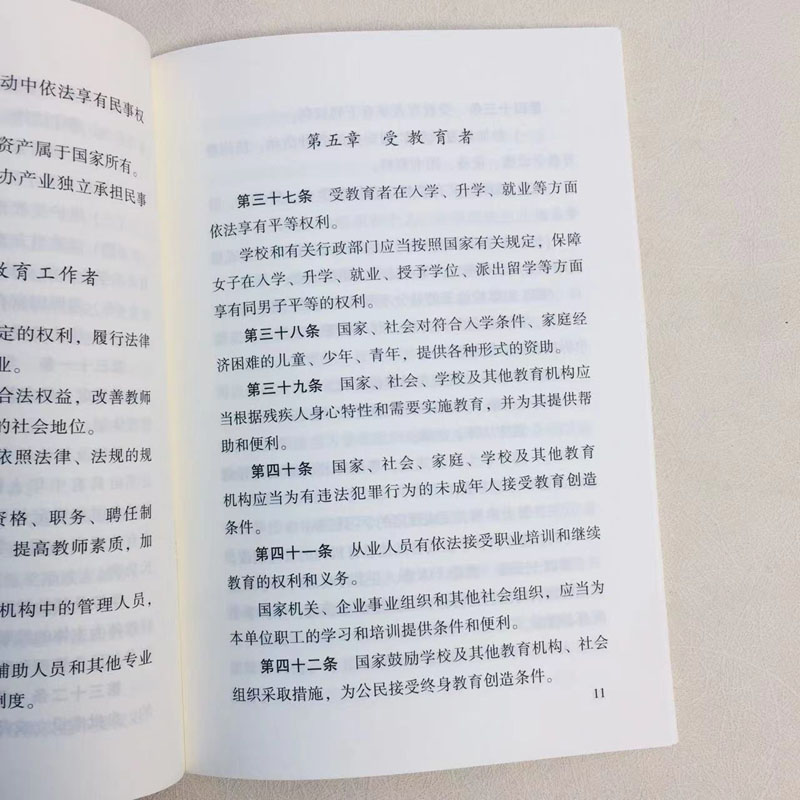 动中依法享有民事权
资产属于国家所有。
办产业独立承担民事
教育工作者
定的权利，履行法律
业。
合法权益，改善教师
的社会地位。
依照法律、法规的规
资格、职务、聘任制
提高教师素质，加
机构中的管理人员，
辅助人员和其他专业
制度。
第五章 受教育者
第三十七条 受教育者在入学、升学、就业等方面
依法享有平等权利。
学校和有关行政部门应当按照国家有关规定，保障
女子在入学、升学、就业、授予学位、派出留学等方面
享有同男子平等的权利。
第三十八条 国家、社会对符合入学条件、家庭经
济困难的儿童、少年、青年，提供各种形式的资助。
第三十九条 国家、社会、学校及其他教育机构应
当根据残疾人身心特性和需要实施教育，并为其提供帮
助和便利。
第四十条 国家、社会、家庭、学校及其他教育
机构应当为有违法犯罪行为的未成年人接受教育创造
条件。
第四十一条 从业人员有依法接受职业培训和继续
教育的权利和义务。
国家机关、企业事业组织和其他社会组织，应当为
本单位职工的学习和培训提供条件和便利。
第四十二条 国家鼓励学校及其他教育机构、社会
组织采取措施，为公民接受终身教育创造条件。
11